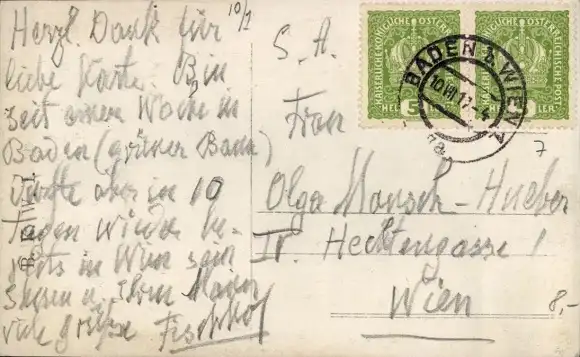 10/7
Herzl. Dank für
liebe Karte. Bin
seit einer Woche in
Baden (grüner Baum)
dürfte aber in 10
Tagen wieder be-
reits in Wien sein
Ihnen u. Ihrem Mann
viele Grüße Fischhof
S. H.
Frau
Olga Mansch-Hueber
IV. Hechtengasse 1
Wien
KAISERLICHE KÖNIGLICHE ÖSTERREICHISCHE POST
5
HELLER
BADEN b. WIEN
7
8,-